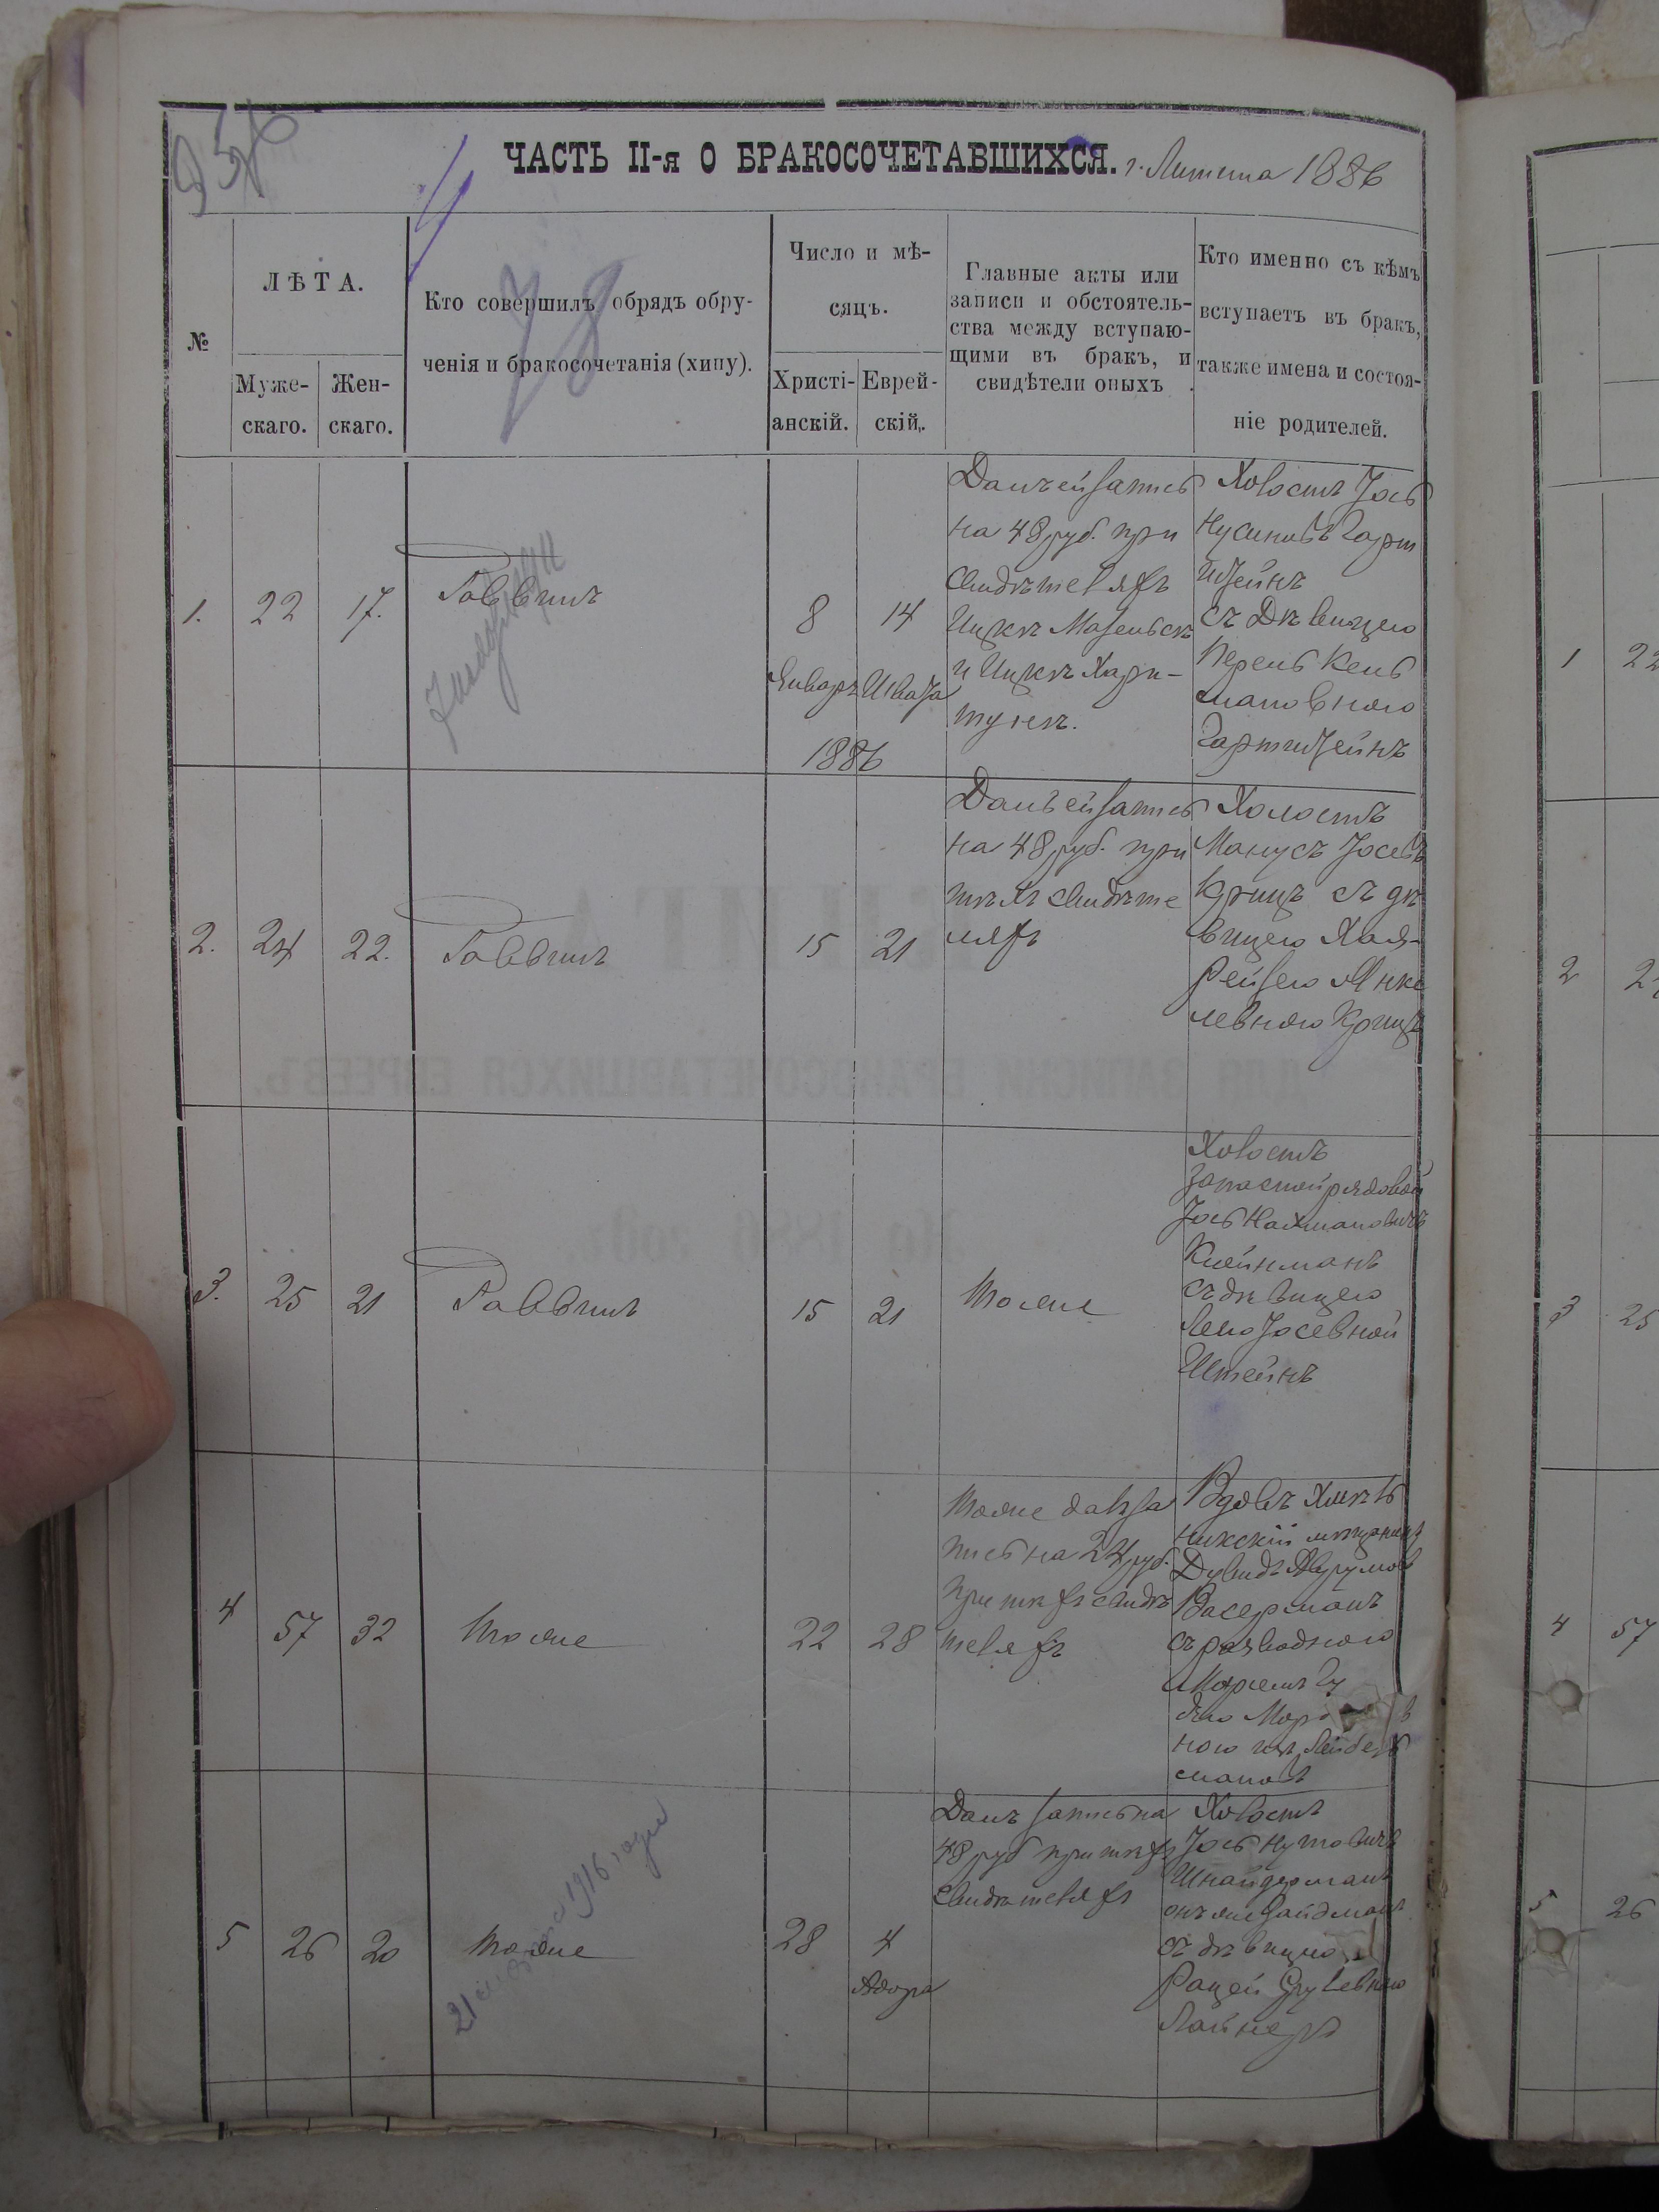 ЧАСТЬ II-я О БРАКОСОЧЕТАВШИХСЯ. г. Литина 1886
№
ЛѢТА.
Муже-
скаго.
Жен-
скаго.
Кто совершилъ обрядъ обру-
ченія и бракосочетанія (хипу).
Число и мѣ-
сяцъ.
Христі-
анскій.
Еврей-
скій.
Главные акты или
записи и обстоятель-
ства между вступаю-
щими въ бракъ, и
свидѣтели оныхъ
Кто именно съ кѣмъ
вступаетъ въ бракъ,
также имена и состоя-
ніе родителей.
1. 22 17.
Раввинъ
8 14
Январ Швата
1886
Данъ ей запись
на 48 руб. при
свидѣтеляхъ
и Ицкѣ Хари-
тункѣ.
Холостъ Іось
Нусиновъ Гарт
штейнъ
съ Дѣвицею
Перель Кель
мановною
Гартштейнъ
2. 24 22.
Раввинъ
15 21
Данъ ей запись
на 48 руб. при
тѣхъ свидѣте
ляхъ
Холостъ
Манусъ Іосевъ
Крицъ съ дѣ
вицею Хая-
Рейзею Янке
левною Крицъ
3. 25 21
Раввинъ
15 21
Тоже
Холостъ
Запасной рядовой
Іось Нахмановичъ
Клейнманъ
съ дѣвицею
Леею Іосевной
Штейнъ
4 57 32
Тоже
22 28
Тоже далъ за
пись на 24 руб.
при тѣхъ свидѣ
теляхъ
Вдовъ Хмель
никскій мѣщанинъ
Дувидъ Аврумов
Васерманъ
съ разводною
ною
5 26 20
Тоже
28 4
Адора
Данъ запись на
48 руб при тѣхъ
свидѣтеляхъ
Холостъ
Іось Нутовичъ
Шнайдерманъ
онъ же Зайдманъ
съ дѣвицею
Рацей Срулевною
Лайнеръ
1 22
2
3 25
4 57
5 26